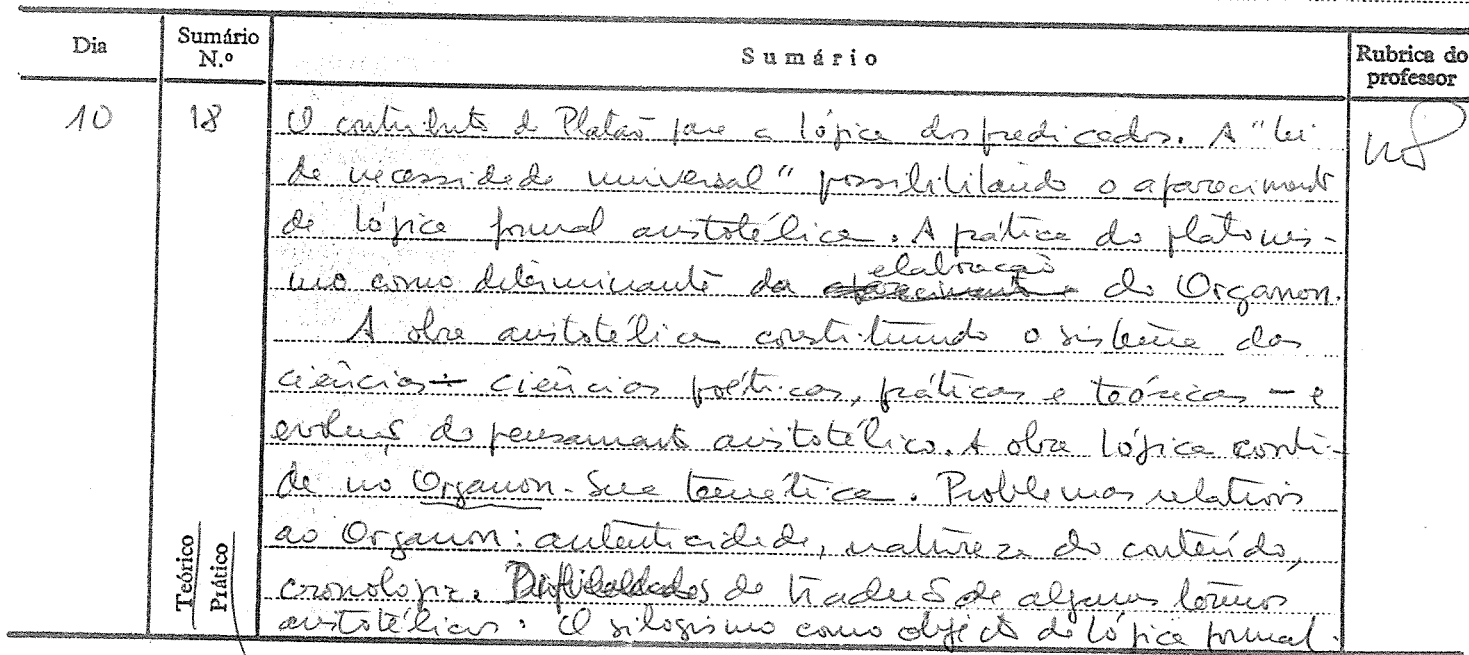 Dia
Sumário N.º
Sumário
Rubrica do professor
10
18
O contributo de Platão para a lógica dos predicados. A "lei
de necessidade universal" possibilitando o aparecimento
da lógica formal aristotélica. A prática do platonis-
mo como determinante da elaboração do Organon.
A obra aristotélica constituindo o sistema das
ciências - ciências poéticas, práticas e teóricas - e
evolução do pensamento aristotélico. A obra lógica conti-
da no Organon. Sua temática. Problemas relativos
ao Organon: autenticidade, natureza do conteúdo,
cronologia. Dificuldades de tradução de alguns termos
aristotélicos: O silogismo como objecto da lógica formal.
Teórico
Prático